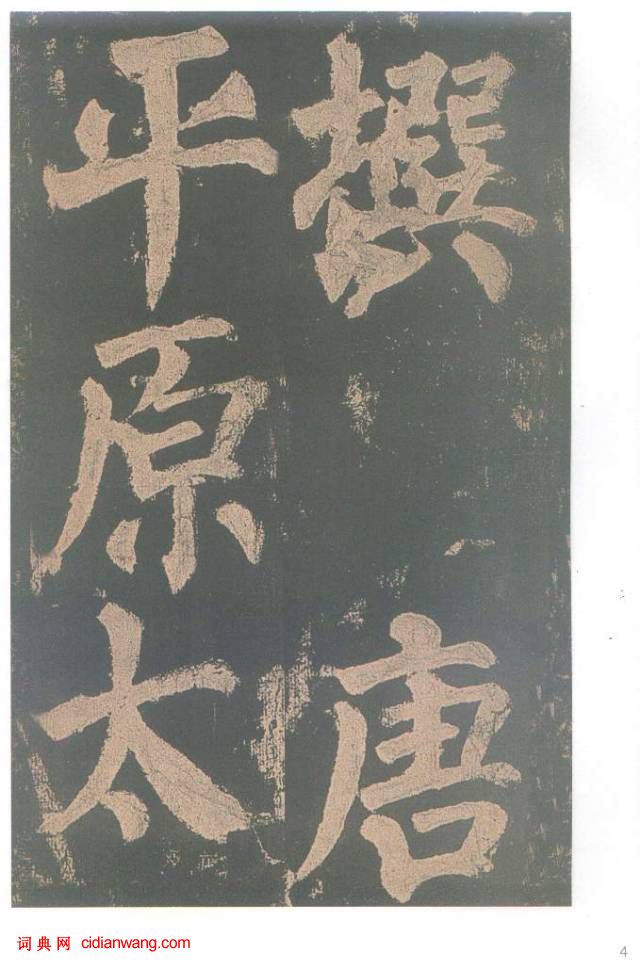 撰唐
平原太
词典网 cidianwang.com
4